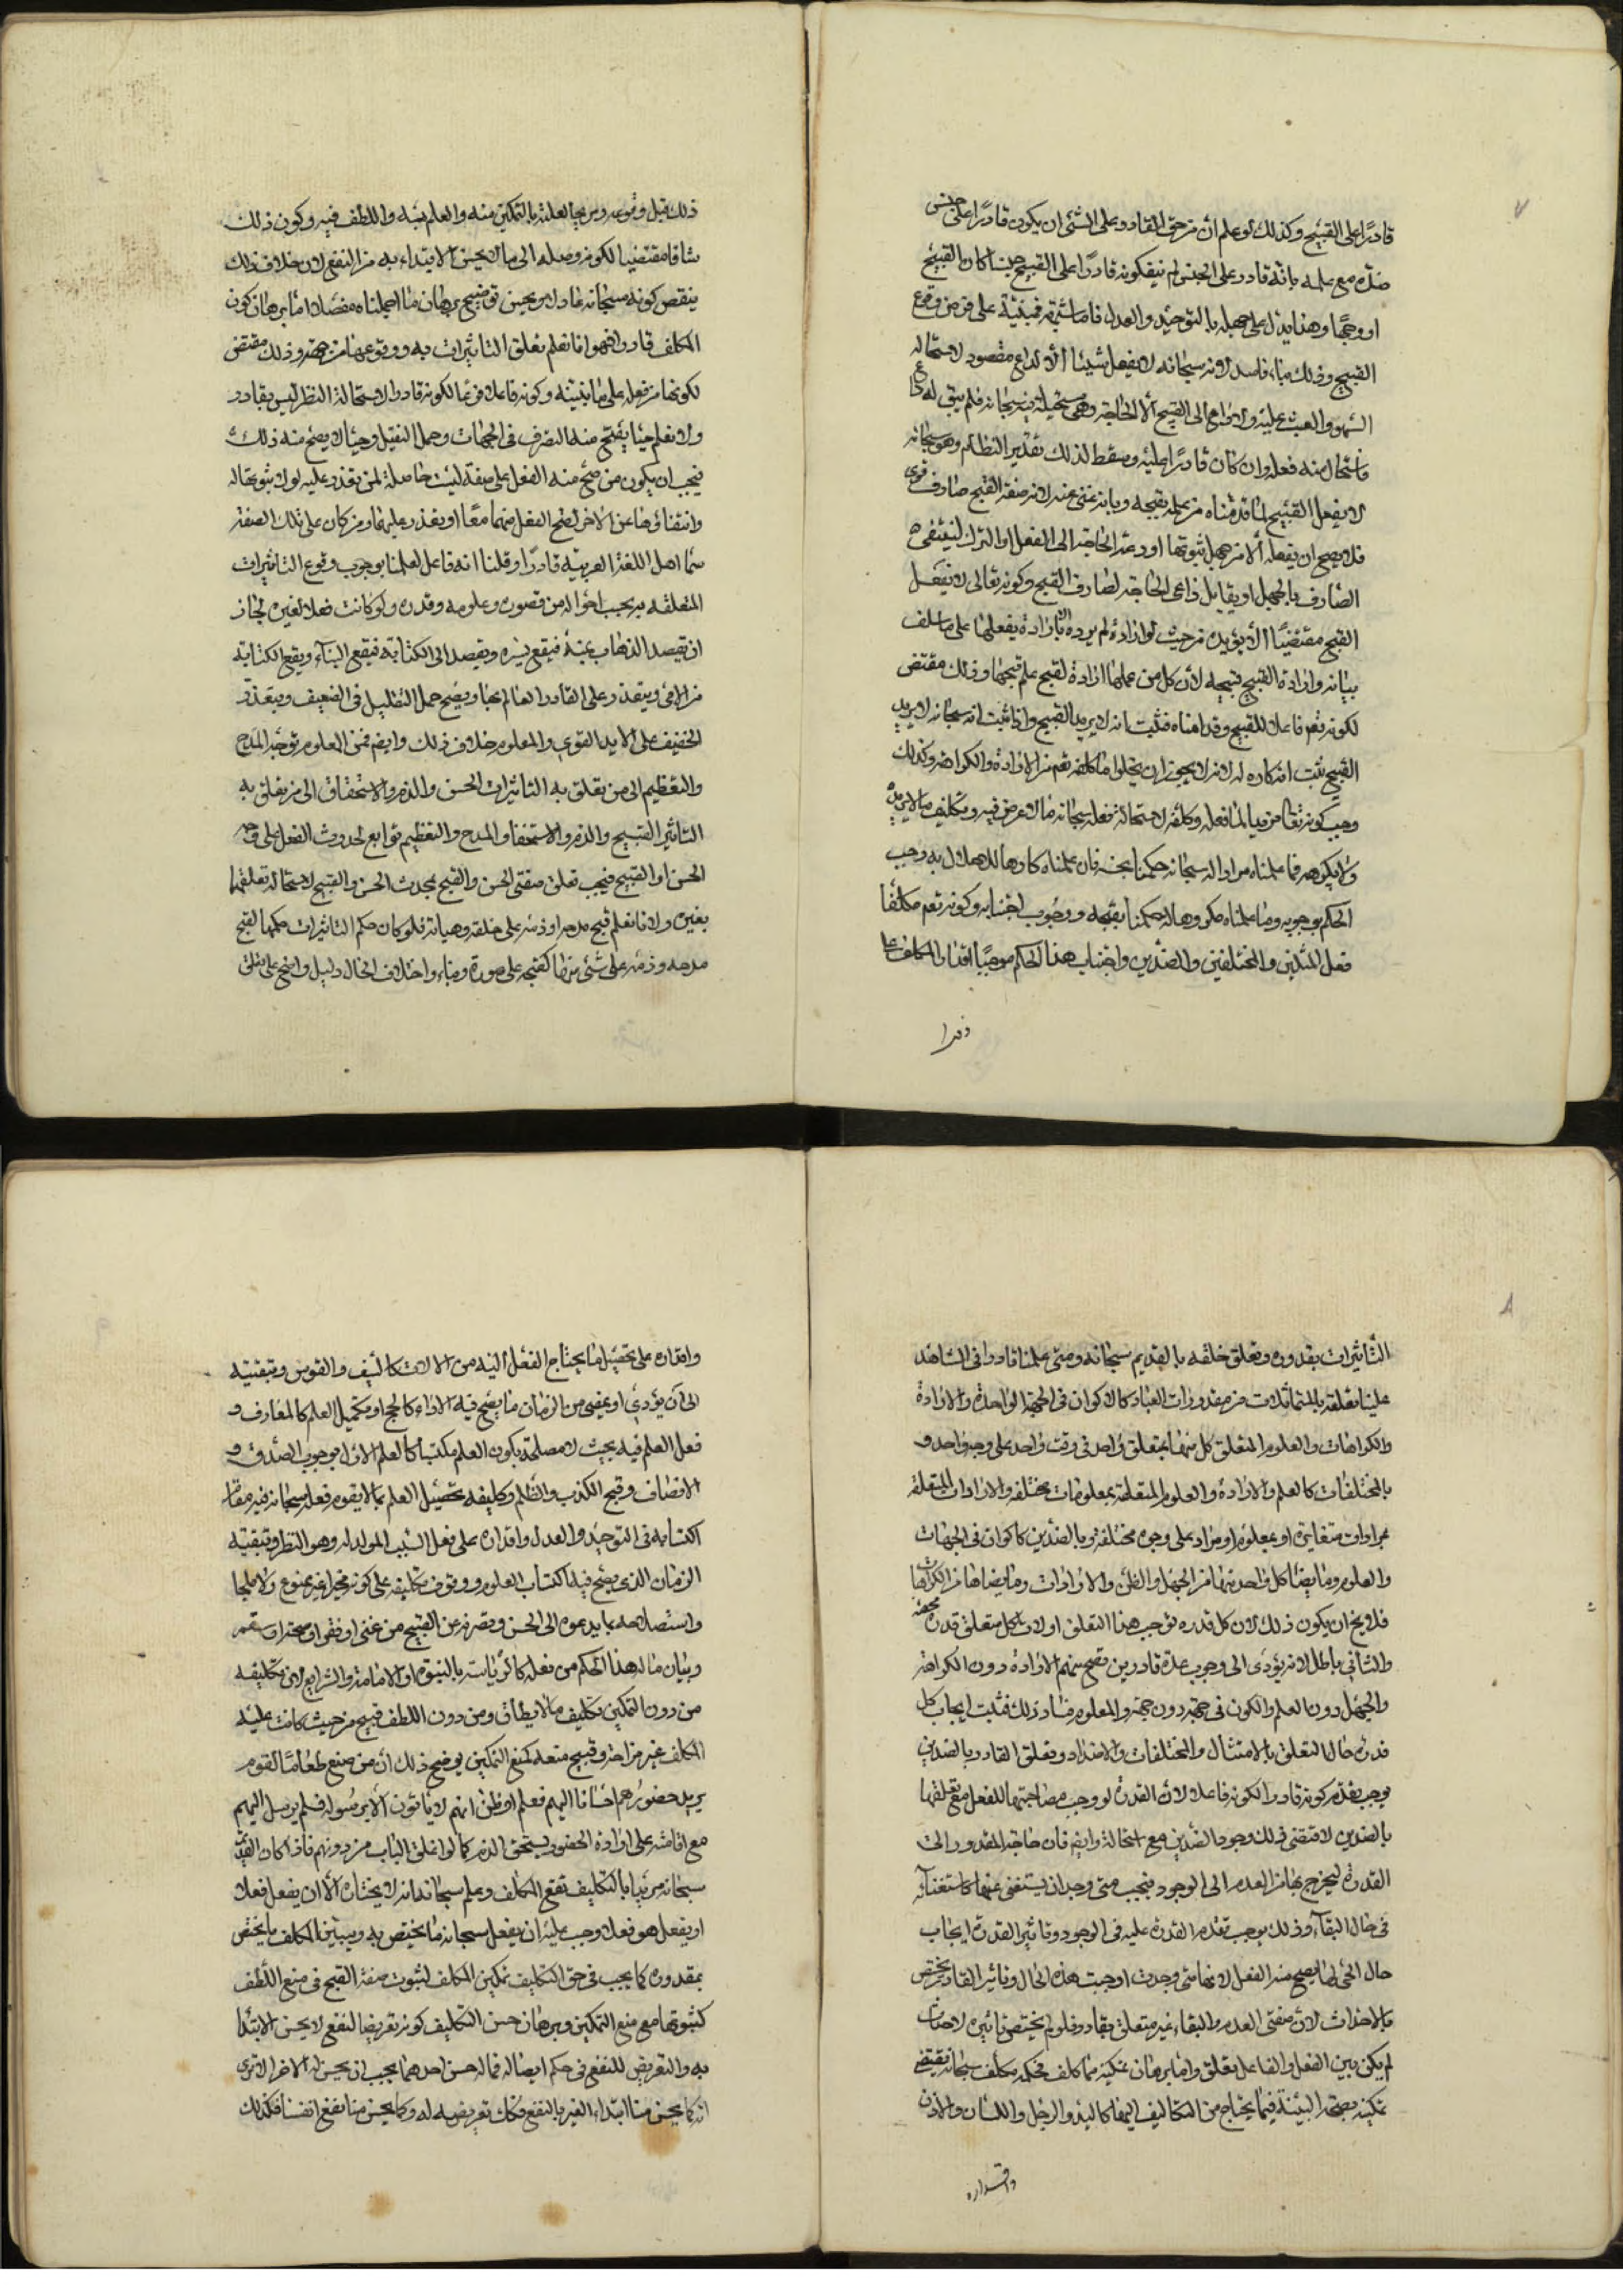 ٧
قادرًا على القبيح وكذلك لو علم ان من حق القادر على الشئ ان يكون قادرًا على جنس
ضدّه مع علمه بانّه قادر على الجنس لم ينف كونه قادرًا على القبيح حسنا كان القبيح
او وجهًا وهذا يدل على جهله بالتوحيد والعدل فاما شبهته فمبنيّة على فرض وقوع
القبيح وذلك بناء فاسد لانه سبحانه لا يفعل شيئا الّا لداع مقصود لاستحالة
السهو والعبث عليه ولا داعى الى القبيح الّا الحاجة وهى مستحيلة فيه سبحانه فلم يبق له داع
فاستحال منه فعله وان كان قادرًا عليه وسقط لذلك تقدير النظام وهو سبحانه
لا يفعل القبيح لما قدمناه من علمه بقبحه وبانه غنى عنه لانه صفة القبح صارف قوى
فلا يصح ان يفعله الّا من جهل ثبوتها او دعته الحاجة الى الفعل او الترك لينتفى
الصارف بالجهل او يقابل داعى الحاجة لصارف القبح وكونه تعالى لا يفعل
القبيح مقتضيًا الّا يريده من حيث لو اراده لم يرده الّا بارادة يفعلها على ما سلف
بيانه وارادة القبيح قبيحة لان كل من علمها ارادة لقبيح علم قبحها وذلك مقتض
لكونه تعم فاعلا للقبيح وقد افسدناه فثبت انه لا يريد القبيح واذا ثبت انه سبحانه لا يريد
القبيح ثبت انه كاره له لانه لا يجوز ان يخلوا ما كلفه تعم من الارادة والكراهة وكذلك
وجب كونه تعالى مريدا لما فعله وكلفه لاستحالة فعله سبحانه مالا غرض فيه وتكليف مالا يريده
ولا يكرهه فما علمناه مرادا له سبحانه حكمنا بحسنه فان علمناه كارها للاخلال به وجب
الحكم بوجوبه وما علمناه مكروها له حكمنا بقبحه ووجوب اجتنابه وكونه تعم مكلفًا
فعل المثلين والمختلفين والضدّين واجتناب هذا الحكم موجبًا اقدار المكلف على
ذلك قبل وقوعه ويزيح العلة بالتمكين منه والعلم به واللطف فيه وكون ذلك
شاقا مقتضيا لكونه وصلة الى مالا يحسن الابتداء به من النفع لان خلاف ذلك
ينقص كونه سبحانه عادلا ونحن نوضح برهان ما اجملناه مفصّلا اما برهان كون
المكلف قادرا فهو انا نعلم تعلق التاثيرات به ووقوعها من جهته وذلك مقتض
لكونها من فعله على ما بينته وكونه فاعلا فرعا لكونه قادرا لاستحالة النظر ليس بقادر
ولانا نعلم حيّا يصح منه التصرف فى الجهات وحمل الثقيل وحيّا لا يصح منه ذلك
فيجب ان يكون من صح منه الفعل على صفة ليست حاصلة لمن تعذر عليه لولا ثبوتها له
وانتفاؤها عن الاخر لصح الفعل منهما معًا او تعذر عليهما ومن كان على تلك الصفة
سمّا اهل اللغة العربية قادرًا وقلنا انه فاعل لعلمنا بوجوب وقوع التاثيرات
المتعلقة به بحسب احواله من قصوره وعلومه وقدره ولو كانت فعلا لغيره لجاز
ان يقصد الذهاب يمنة فيقع يسره ويقصد الى الكتابة فيقع البناء ويقع الكتابة
من الامّى ويتعذر على القادر العالم بها ويصح حمل الثقيل فى الضعيف ويتعذر
الخفيف على الايد القوى والمعلوم خلاف ذلك وايضم فمن المعلوم توجّه المدح
والتعظيم الى من تعلق به التاثيرات الحسن والذم والاستخفاف الى من تعلق به
التاثير القبيح والذم والاستخفاف والمدح والتعظيم توابع لحدوث الفعل على وجه
الحسن او القبيح فيجب تعلق صفتى الحسن والقبح بمحدث الحسن والقبيح لاستحالة تعلقهما
بغيره ولانا نعلم قبح مدحه او ذمّه على خلقه وهيأته فلو كان حكم التاثيرات حكمها لقبح
مدحه وذمّه على شئ منها كقبحه على صورة وبناء واختلاف الحال دليل واضح على تعلق
٨
التّأثيرات بقدوره وتعلق خلقه بالقديم سبحانه ومتى علمنا قادرا فى الشاهد
علينا تعلقه بالمتماثلات من مقدورات العباد كالاكوان فى الجهة الواحدة والارادة
والكراهات والعلوم المتعلق كل منها بمتعلق واحد فى وقت واحد على وجه واحد و
بالمختلفات كالعلم والارادة والعلوم المتعلقة بمعلومات مختلفة والارادات المتعلقة
بمرادات متغايرة او بمعلوم او مراد على وجوه مختلفة وبالضدّين كاكوان فى الجهات
والعلوم وما يضا كل واحد منها من الجهل والظن والارادات وما يضاها من الكراهات
فلا يخ ان يكون ذلك لان كل قدره توجب هذا التعلق او لان لكل متعلق قدرة تخصه
والثانى باطل لانه يؤدى الى وجوب عدة قادرين تصح منهم الارادة دون الكراهة
والجهل دون العلم والكون فى جهة دون جهة والمعلوم فساد ذلك فثبت ايجاب كل
قدرة حالا لتعلق بالامتثال والمختلفات والاضداد وتعلق القادر بالضدين
يوجب تقدّم كونه قادرا لكونه فاعلا لان القدرة لو وجب مصاحبتها للفعل مع تعلقها
بالضدين لاقتضى ذلك وجود الضدين مع استحالة وايضم فان حاجة المقدور الى
القدرة ليخرج بها من العدم الى الوجود فيجب متى وجد ان يستغنى عنها كاستغنائه
فى حال البقاء وذلك يوجب تقدم القدرة عليه فى الوجود وتاثير القدرة ايجاب
حال الحى لها يصح منه الفعل لانها متى وجدت اوجبت هذه الحال وتاثير القادر يختص
بالاحداث لان صفتى العدم والبقاء غير متعلق بقادر فلو لم يختص تاثيره لاحداث
لم يكن بين الفعل والفاعل تعلق واما برهان تمكينه مما كلف فحكمه مكلف سبحانه يقتضى
تمكينه بصحة البينة فيما يحتاج من التكاليف اليها كاليد والرجل واللسان والاذن
واقداره
واقداره على تحصيل ما يحتاج الفعل اليه من الالات كالسيف والقوس وتبقيته
الى ان يؤدى او يمضى من الزمان ما يصح فيه الاداء كالحج او مكمّل العلم كالمعارف و
فعل العلم فيه بحيث لا مصلحة بكون العلم مكتسبا كالعلم الاول بوجوب الصدق و
الانصاف وقبح الكذب والظلم وتكليفه تحصيل العلم بما لا يقوم فعله سبحانه فيه مقام
اكتسابه فى التوحيد والعدل واقداره على فعل السبب المولد له وهو النظر وتبقيته
الزمان الذى يصح فيه اكتساب العلوم ووقوف تكليفه على كونه مخيرا غير ممنوع ولا ملجا
واستصلاحه بما يدعوه الى الحسن ويصرفه عن القبيح من غنى او فقر او صحة او سقم
وبيان ماله هذا الحكم من فعله كالرياسة بالنبوة او الامامة والشرايع لان تكليفه
من دون التمكين تكليف مالا يطاق ومن دون اللطف قبيح من حيث كانت علة
المكلف غير مزاحة وقبح منعه كمنع التمكين يوضح ذلك ان من صنع طعامًا لقوم
يريد حضورهم احسانا اليهم فعلم او ظن انهم لا ياتون الّا برسوله فلم يرسل اليهم
مع اقامته على ارادة الحضور يستحق الذم كما لو اغلق الباب من دونهم فاذا كان القديم
سبحانه مريدا بالتكليف نفع المكلف ويعلم سبحانه انه لا يختاره الّا ان يفعل فعلا
او يفعل هو فعلا وجب عليه ان يفعل سبحانه ما يختص به ويبيّن للمكلف ما يختص
بمقدوره كما يجب فى حق التكليف تمكين المكلف لثبوت صفة القبح فى منع اللطف
كثبوتها مع منع التمكين وبرهان حسن التكليف كونه تعريضا لنفع لا يحسن الابتداء
به والتعريض للنفع فى حكم ايصاله فما له حسن احدهما يجب ان يحسن له الاخر الا ترى
انه كما يحسن منا ابتداء الغير بالنفع فكك تعريضه له وكما يحسن منا نفع انفسنا فكذلك